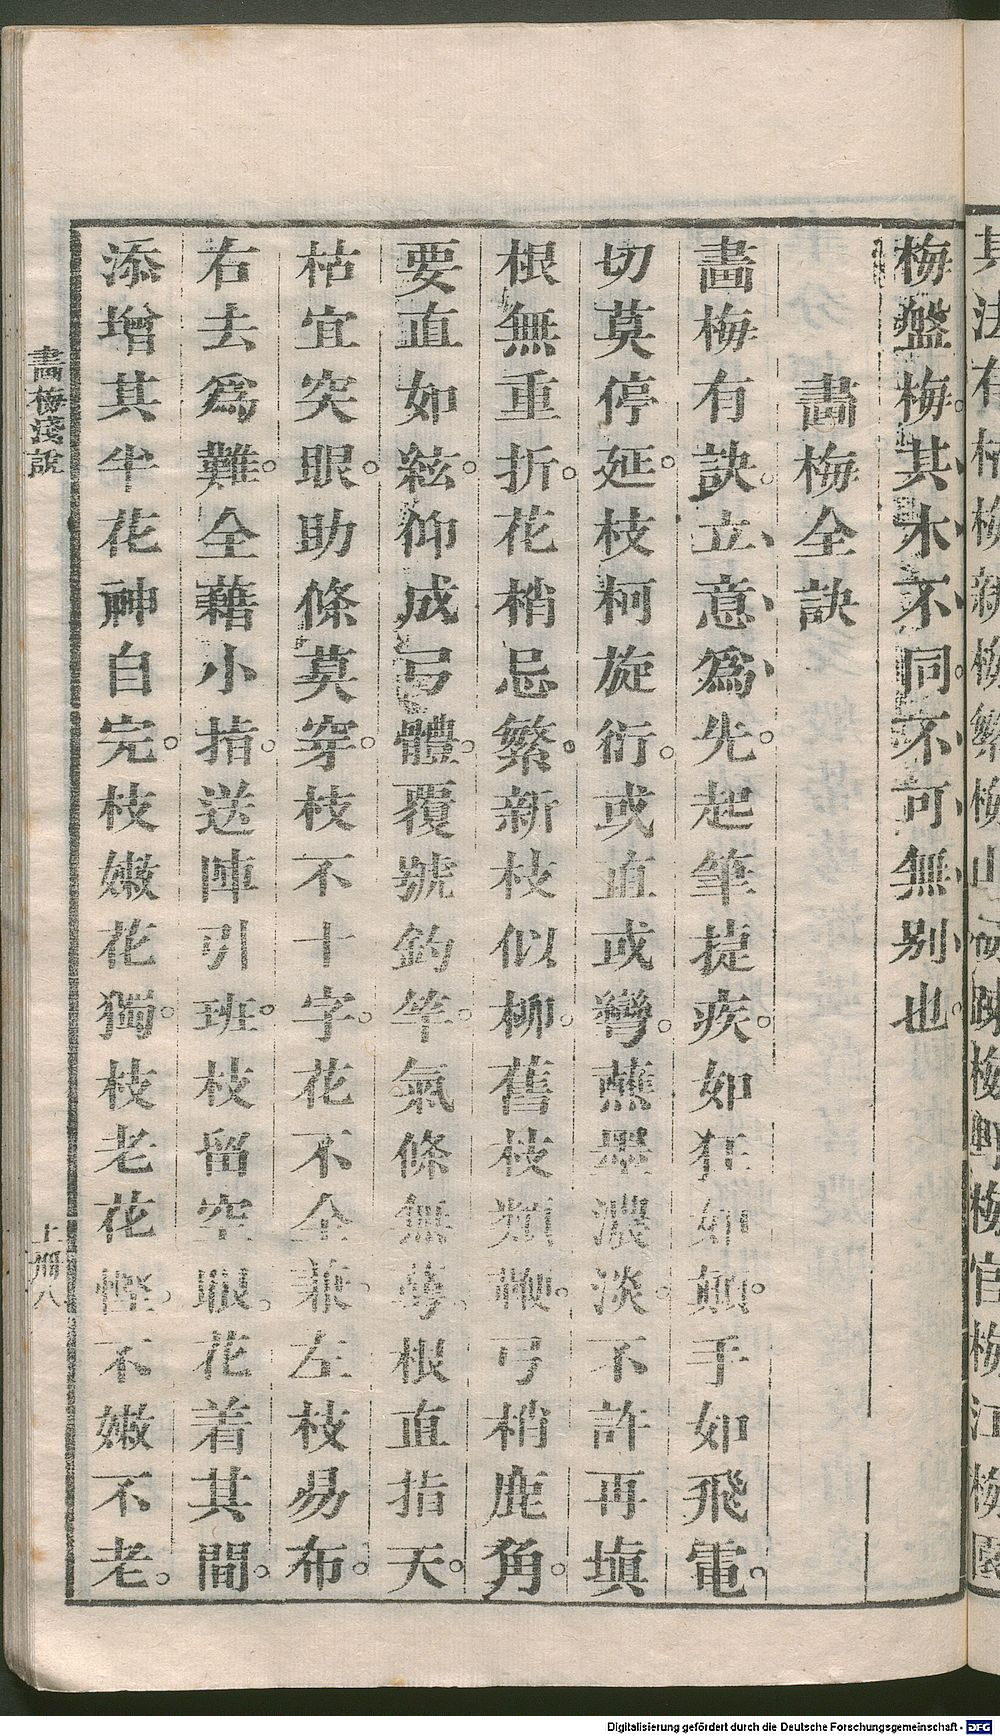 其法有枯梅新梅繁梅山梅疎梅野梅官梅江梅園
梅盤梅。其木不同。不可無別也。
畫梅全訣
畫梅有訣。立意爲先。起筆捷疾。如狂如顛。手如飛電。
切莫停延。枝柯旋衍。或直或彎。蘸墨濃淡。不許再填
根無重折。花梢忌繁。新枝似柳。舊枝類鞭。弓梢鹿角。
要直如絃。仰成弓體。覆號釣竿。氣條無萼。根直指天。
枯宜突眼。助條莫穿。枝不十字。花不全兼。左枝易布。
右去爲難。全藉小指。送陣引班。枝留空眼。花着其間。
添增其半花神自完。枝嫩花獨。枝老花慳。不嫩不老。
畫梅淺說
上冊 八
Digitalisierung gefördert durch die Deutsche Forschungsgemeinschaft - DFG